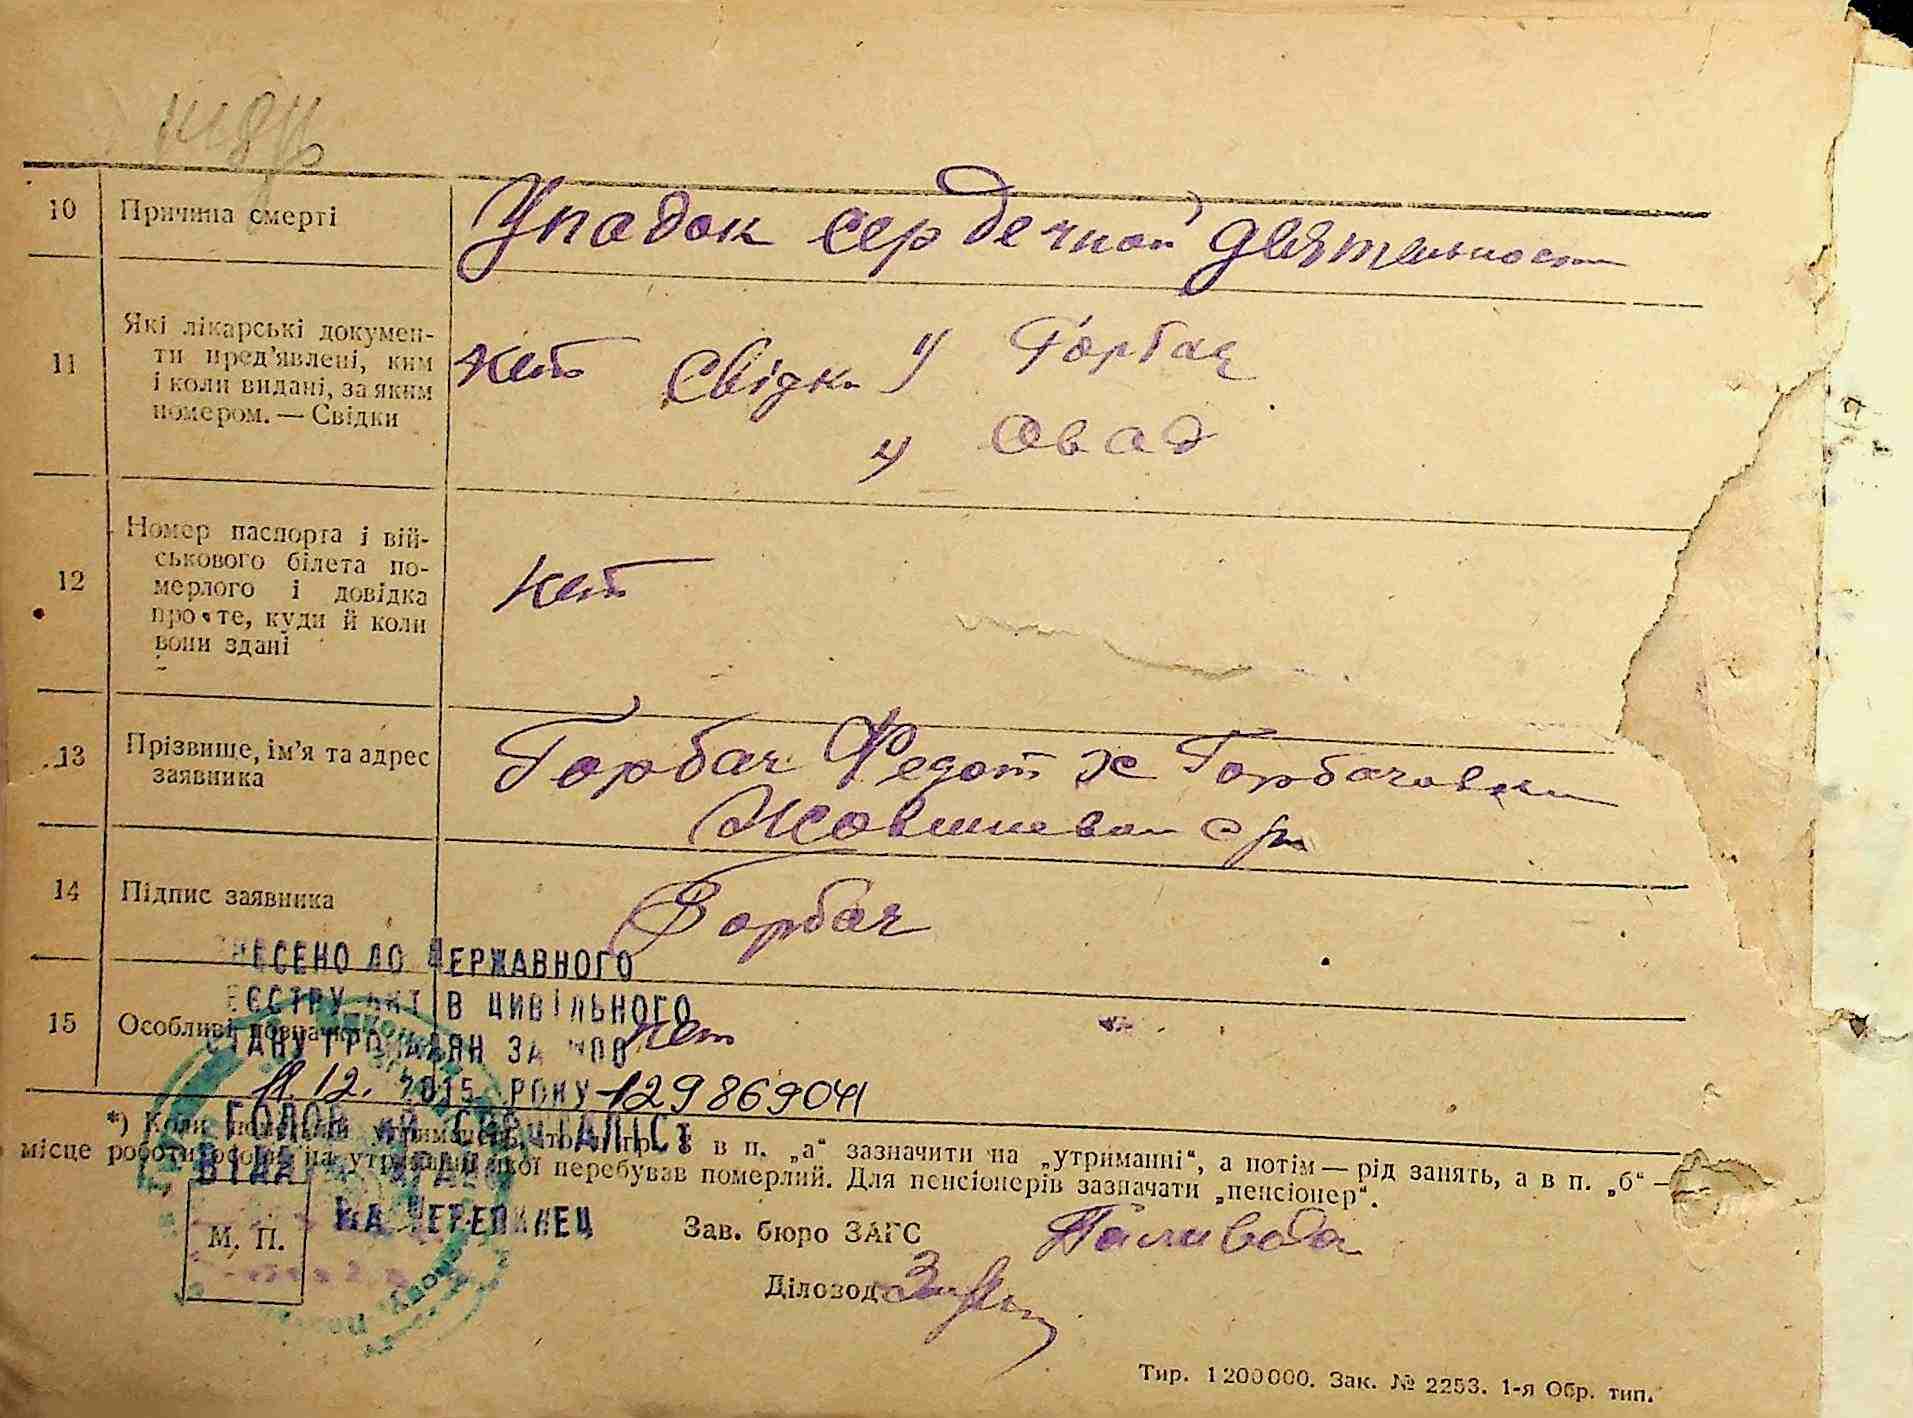 10 Причина смерті Упадок сердечной деятельност
11 Які лікарські докумен-
ти пред'явлені, ким
і коли видані, за яким
номером. — Свідки
нет Свідки у Горбач
у Овад
12 Номер паспорта і вій-
ськового білета по-
мерлого і довідка
про те, куди й коли
вони здані
нет
13 Прізвище, ім'я та адрес
заявника
Горбач Федот х Горбачовки
Жовтневои с р
14 Підпис заявника Горбач
ВНЕСЕНО ДО ДЕРЖАВНОГО
РЕЄСТРУ АКТІВ ЦИВІЛЬНОГО
15 Особливі нет
СТАНУ ГРОМАДЯН ЗА
11.12. 2015 РОКУ 129869041
*) Коли в п. „а“ зазначити на „утриманні“, а потім — рід занять, а в п. „б“ —
ГОЛОВНИЙ СПЕЦІАЛІСТ
місце роботи особи, на утриманні якої перебував померлий. Для пенсіонерів зазначати „пенсіонер“.
ЧЕРЕПИНЕЦ
М. П.
Зав. бюро ЗАГС Паливода
Діловод
Тир. 1200000. Зак. № 2253. 1-я Обр. тип.